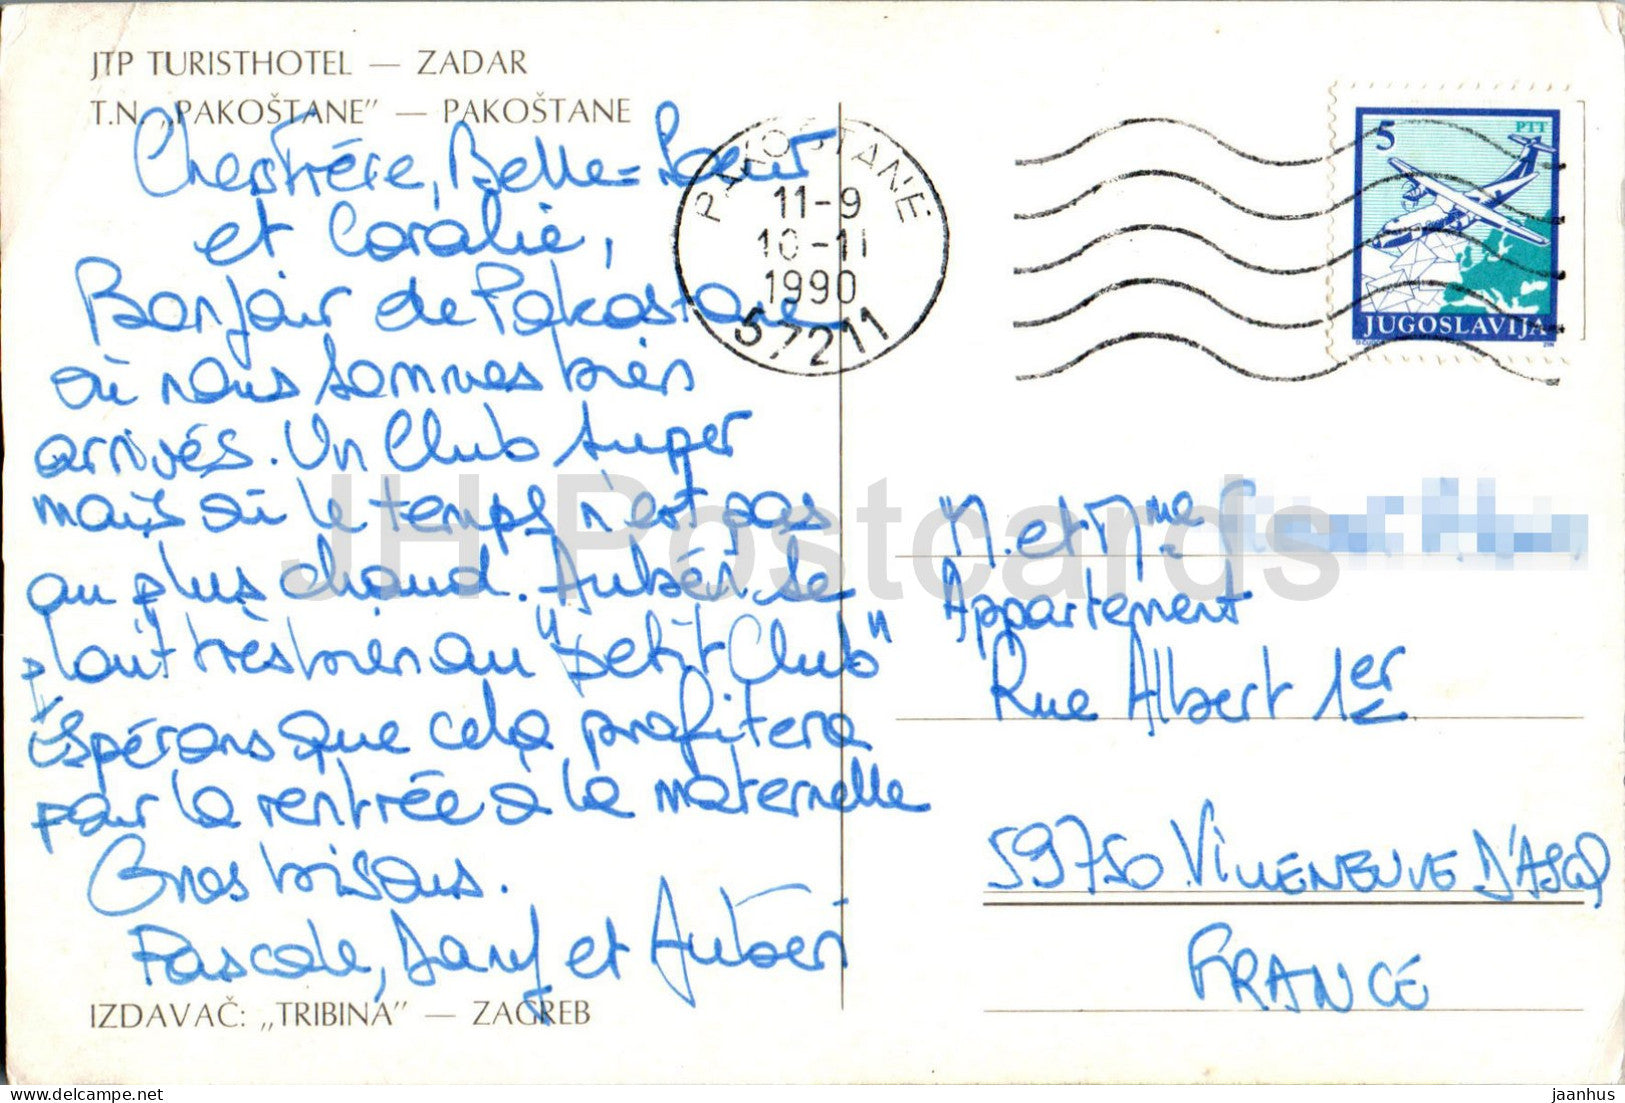 JTP TURISTHOTEL — ZADAR
T.N. „PAKOŠTANE" — PAKOŠTANE
Cher Frère, Belle-Sœur
et Coralie,
Bonjour de Pakostane
où nous sommes bien
arrivés. Un Club super
mais où le temps n'est pas
au plus chaud. Aubéri se
plait très bien au "petit Club"
Espérons que cela profitera
pour la rentrée à la maternelle
Gros bisous.
Pascale, Dany et Aubéri
IZDAVAČ: „TRIBINA" — ZAGREB
PAKOŠTANE
11-9
10-11
1990
57211
5
PTT
JUGOSLAVIJA
M. et Mme
Appartement
Rue Albert 1er
59750 VILLENEUVE D'ASCQ
FRANCE
JH Postcards
jaanhus